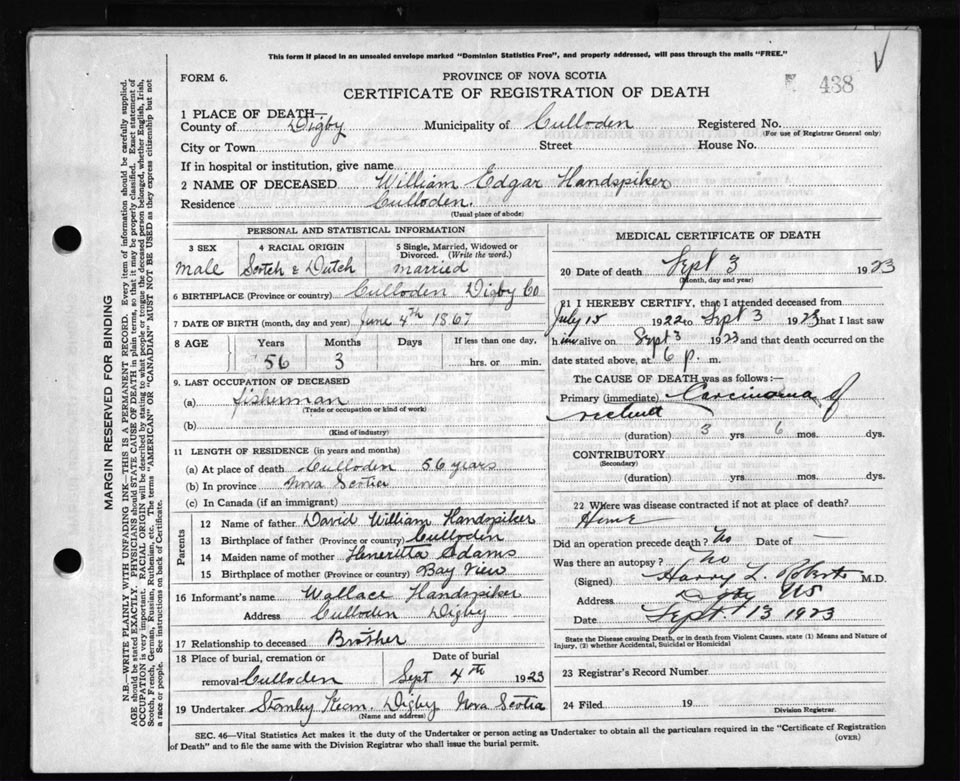 This form if placed in an unsealed envelope marked "Dominion Statistics Free", and properly addressed, will pass through the mails "FREE."
FORM 6.
PROVINCE OF NOVA SCOTIA
CERTIFICATE OF REGISTRATION OF DEATH
438
1 PLACE OF DEATH—
County of Digby Municipality of Culloden Registered No.
(For use of Registrar General only)
City or Town Street House No.
If in hospital or institution, give name
2 NAME OF DECEASED William Edgar Handspiker
Residence Culloden.
(Usual place of abode)
PERSONAL AND STATISTICAL INFORMATION
3 SEX 4 RACIAL ORIGIN 5 Single, Married, Widowed or Divorced. (Write the word.)
male Scotch & Dutch married
6 BIRTHPLACE (Province or country) Culloden Digby Co
7 DATE OF BIRTH (month, day and year) June 4th 1867
8 AGE Years Months Days If less than one day,
56 3 hrs. or min.
9. LAST OCCUPATION OF DECEASED
(a) fisherman
(Trade or occupation or kind of work)
(b)
(Kind of industry)
11 LENGTH OF RESIDENCE (in years and months)
(a) At place of death Culloden 56 years
(b) In province Nova Scotia
(c) In Canada (if an immigrant)
Parents
12 Name of father David William Handspiker
13 Birthplace of father (Province or country) Culloden
14 Maiden name of mother Heneritta Adams
15 Birthplace of mother (Province or country) Bay View
16 Informant's name Wallace Handspiker
Address Culloden Digby
17 Relationship to deceased Brother
18 Place of burial, cremation or removal Culloden Date of burial Sept 4th 1923
19 Undertaker Stanley Digby Nova Scotia
(Name and address)
MEDICAL CERTIFICATE OF DEATH
20 Date of death Sept 3 1923
(Month, day and year)
21 I HEREBY CERTIFY, that I attended deceased from
July 15 1922 to Sept 3 1923 that I last saw
him alive on Sept 3 1923 and that death occurred on the
date stated above, at 6 p. m.
The CAUSE OF DEATH was as follows:—
Primary (immediate) Carcinoma of
rectum
(duration) 3 yrs 6 mos. dys.
CONTRIBUTORY
(Secondary)
(duration) yrs mos. dys.
22 Where was disease contracted if not at place of death?
Home
Did an operation precede death? No Date of —
Was there an autopsy? No
(Signed) Harry L. Roberts M.D.
Address Digby NS
Date Sept. 13 1923
State the Disease causing Death, or in death from Violent Causes, state (1) Means and Nature of Injury, (2) whether Accidental, Suicidal or Homicidal
23 Registrar's Record Number
24 Filed 19
Division Registrar.
SEC. 46—Vital Statistics Act makes it the duty of the Undertaker or person acting as Undertaker to obtain all the particulars required in the "Certificate of Registration of Death" and to file the same with the Division Registrar who shall issue the burial permit.
(OVER)
MARGIN RESERVED FOR BINDING
N.B.—WRITE PLAINLY WITH UNFADING INK—THIS IS A PERMANENT RECORD. Every item of information should be carefully supplied.
AGE should be stated EXACTLY. PHYSICIANS should STATE CAUSE OF DEATH in plain terms, so that it may be properly classified. Exact statement of
OCCUPATION is very important. RACIAL ORIGIN will be described by stating to what people or tongue the deceased person belonged, whether English, Irish,
Scotch, French, German, Russian, Ruthenian, etc. The terms "AMERICAN" OR "CANADIAN" MUST NOT BE USED as they express citizenship but not
a race or people. See instructions on back of Certificate.